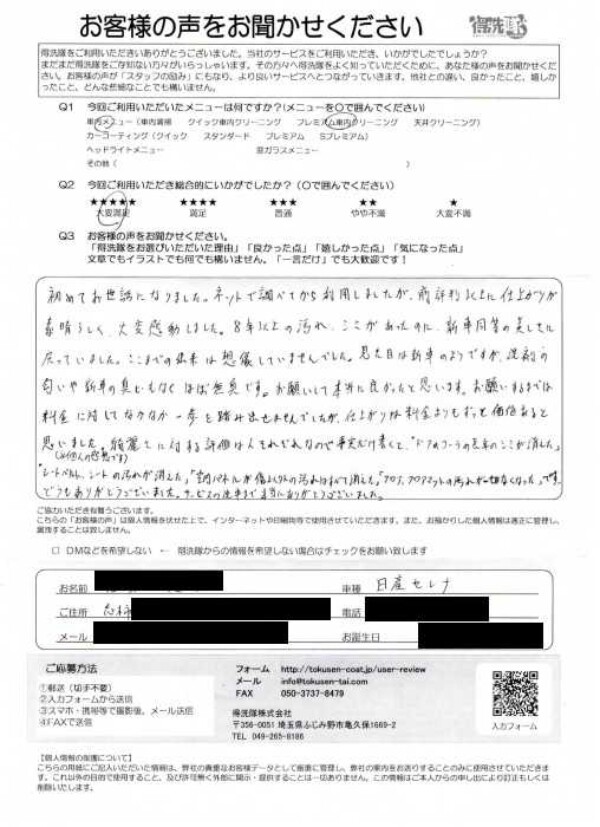 お客様の声をお聞かせください
得洗隊
得洗隊をご利用いただきありがとうございました。当社のサービスをご利用いただき、いかがでしたでしょうか?
まだまだ得洗隊をご存知ない方々がいらっしゃいます。その方々へ得洗隊をよく知っていただくために、あなた様の声をお聞かせください。お客様の声が「スタッフの励み」にもなり、より良いサービスへとつながっていきます。他社との違い、良かったこと、嬉しかったこと、どんな些細なことでも構いません。
Q1 今回ご利用いただいたメニューは何ですか?(メニューを○で囲んでください)
車内メニュー(車内清掃 クイック車内クリーニング プレミアム車内クリーニング 天井クリーニング)
カーコーティング(クイック スタンダード プレミアム Sプレミアム)
ヘッドライトメニュー 窓ガラスメニュー
その他( )
Q2 今回ご利用いただき総合的にいかがでしたか?(○で囲んでください)
★★★★★ ★★★★ ★★★ ★★ ★
大変満足 満足 普通 やや不満 大変不満
Q3 お客様の声をお聞かせください。
「得洗隊をお選びいただいた理由」「良かった点」「嬉しかった点」「気になった点」
文章でもイラストでも何でも構いません。「一言だけ」でも大歓迎です!
初めてお世話になりました。ネットで調べてから利用しましたが、前評判以上に仕上がりが
素晴らしく、大変感動しました。8年以上の汚れ、ここがあったのに、新車同等の美しさに
戻っていました。ここまでの結果は想像していませんでした。見た目は新車のようですが、洗剤の
匂いや新車の臭いもなく ほぼ無臭です。お願いして本当に良かったと思います。お願いするまでは
料金に対してなかなか一歩を踏み出せませんでしたが、仕上がりは料金よりもずっと価値あると
思いました。綺麗さに対する評価は人それぞれなので事実だけ書くと、「ドアのコーラの
のここが消えた」
(※個人の感想です)
「シートベルト、シートの汚れが消えた」「
パネルが傷以外の汚れはすべて消えた」「フロア、フロアマットの汚れが一切なくなった」です。
どうもありがとうございました。サービスの洗車まで本当にありがとうございました。
ご協力いただき有難うございます。
こちらの「お客様の声」は個人情報を伏せた上で、インターネットや印刷物等で使用させていただきます。また、お預かりした個人情報は適正に管理し、漏洩することは致しません。
□ DMなどを希望しない ← 得洗隊からの情報を希望しない場合はチェックをお願い致します
お名前 車種 日産セレナ
ご住所 電話
メール お誕生日
ご応募方法
①郵送(切手不要)
②入力フォームから送信
③スマホ・携帯等で撮影後、メール送信
④FAXで送信
フォーム http://tokusen-coat.jp/user-review
メール info@tokusen-tai.com
FAX 050-3737-8479
得洗隊株式会社
〒356-0051 埼玉県ふじみ野市亀久保1669-2
TEL 049-265-8186
入力フォーム
【個人情報の保護について】
こちらの用紙にご記入いただいた情報は、弊社の貴重なお客様データとして厳重に管理し、弊社の案内をお送りすることのみに使用させていただきます。これ以外の目的で使用すること、及び許可無く外部に開示・提供することは一切ありません。この情報はご本人からの申し出により訂正もしくは削除いたします。